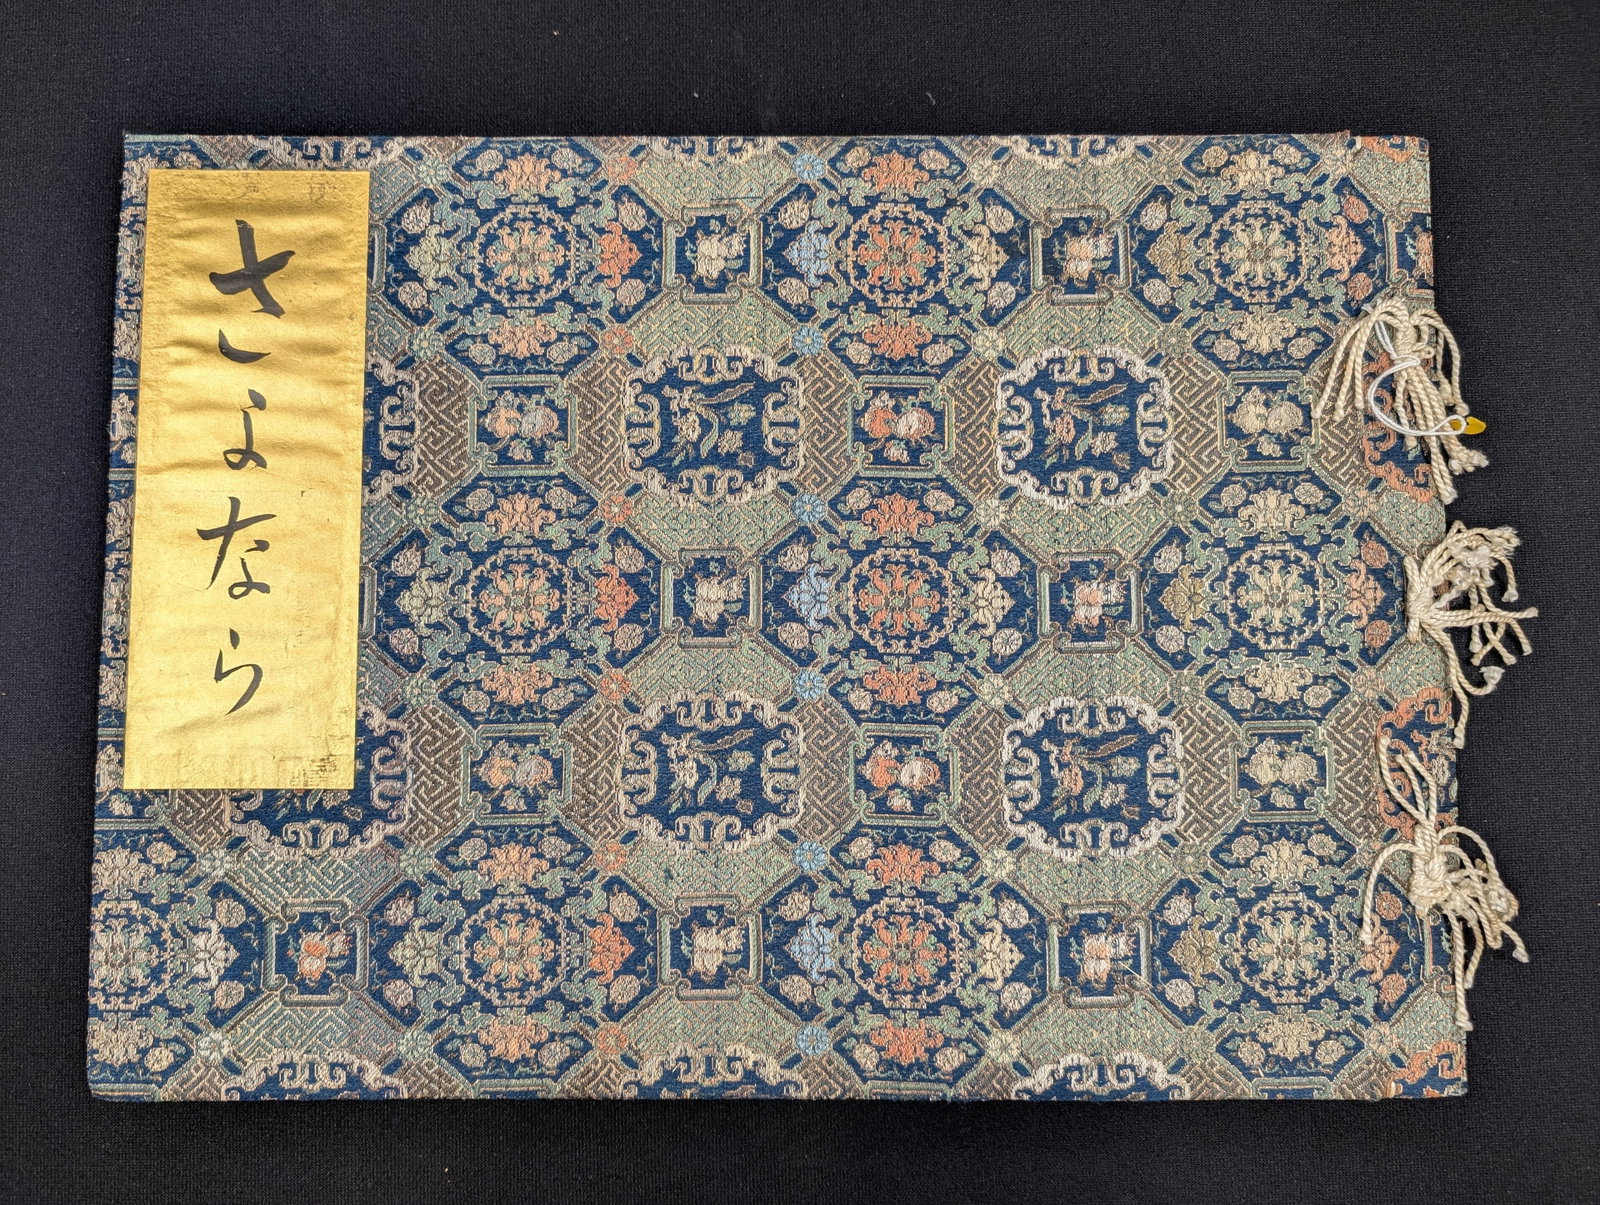 さよなら